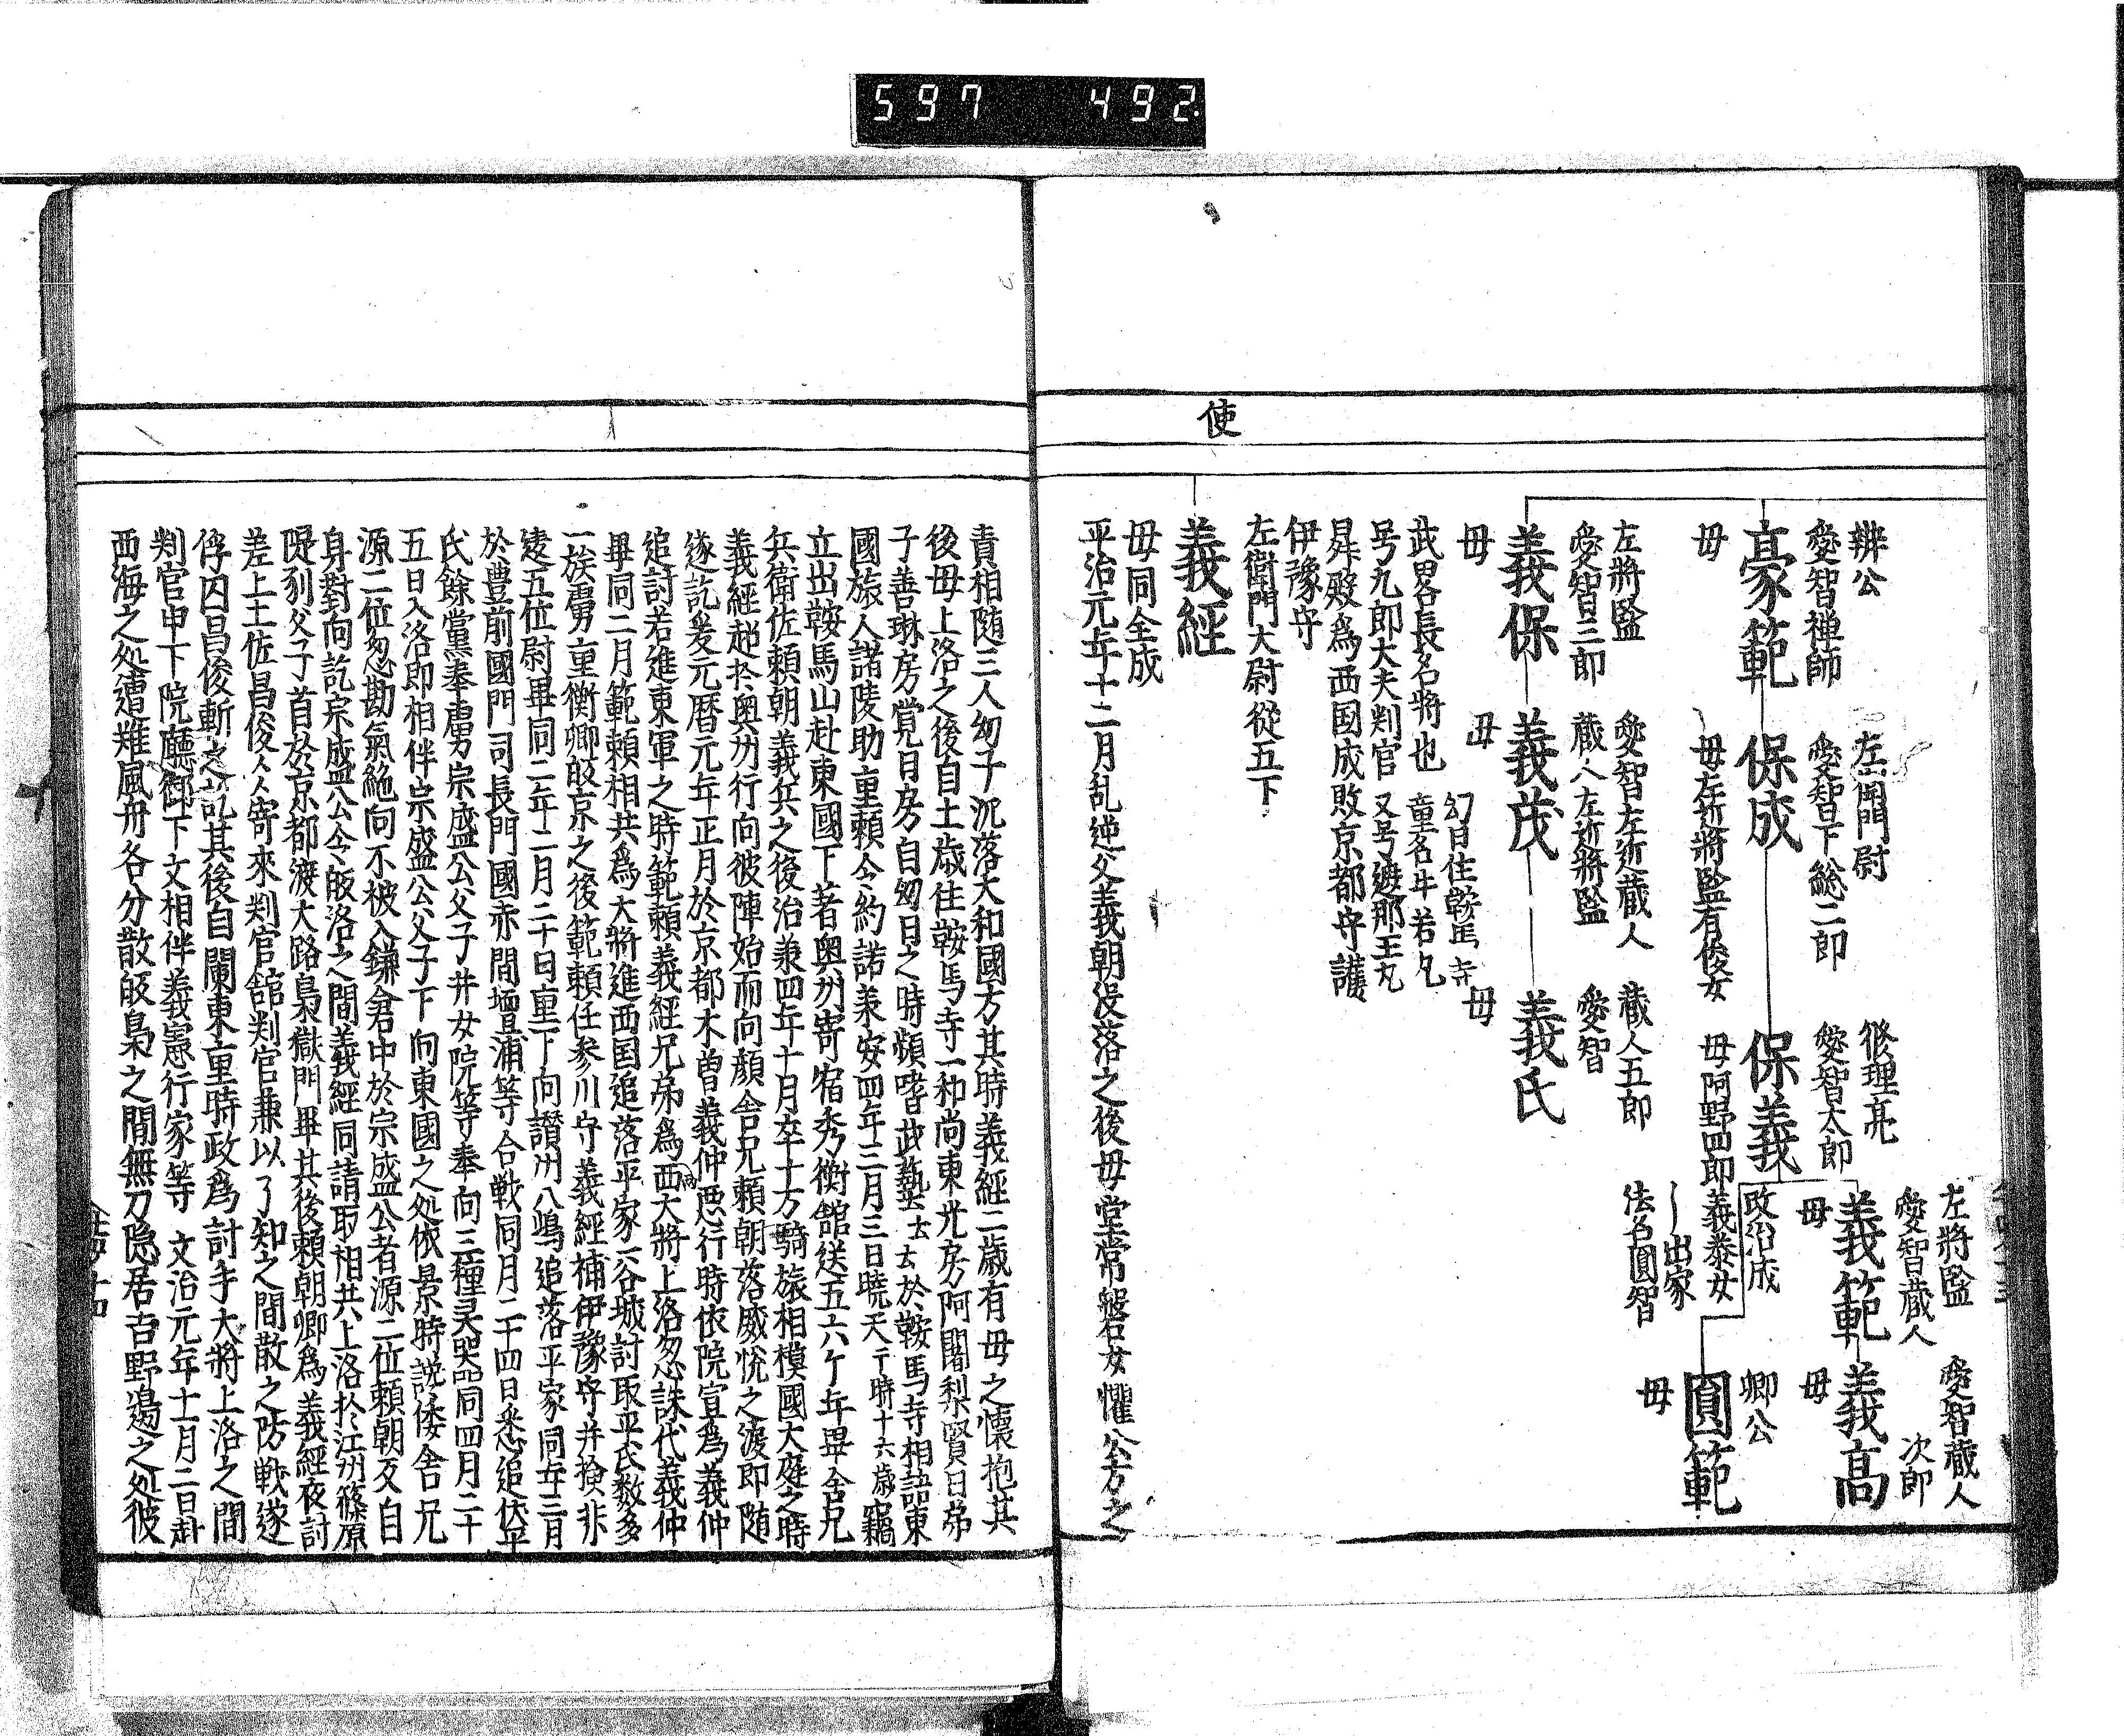 597 492.
使
左將監
愛智蔵人
義範
母
愛智蔵人
次郎
義高
母
辨公
愛智禅師
豪範
母
左衛門尉
愛智下総二郎
保成
母左近將監有俊女
修理亮
愛智太郎
保義
母阿野四郎義泰女
改治成
出家
法名圓智
卿公
圓範
母
左將監
愛智三郎
義保
母
愛智左近蔵人
蔵人左近將監
義茂
母
蔵人五郎
愛智
義氏
母
武畧長名將也
幻日住鞍馬寺
童名牛若丸
号九郎大夫判官 又号遮那王丸
昇殿為西国成敗京都守護
伊豫守
左衛門大尉従五下
義經
母同全成
平治元年十二月乱逆父義朝没落之後母堂常磐女懼公方之
責相随三人幼子沉落大和國方其時義經二歳有母之懐抱其
後母上洛之後自土歳住鞍馬寺一和尚東光房阿闍梨賢日弟
子善琳房覚日房自幼日之時頻嗜武藝去去於鞍馬寺相語東
國旅人諸陵助重頼令約諾兼安四年三月三日暁天于時十六歳竊
立出鞍馬山赴東國下著奥州寄宿秀衡舘送五六ケ年畢舎兄
兵衛佐頼朝義兵之後治兼四年十月卒十万騎旅相模國大庭之時
義經超於奥州行向彼陣始而向顔舎兄頼朝落感悦之涙即随
逐訖爰元暦元年正月於京都木曽義仲悪行時依院宣為義仲
追討若進東軍之時範頼義經兄弟為西大將上洛忽誅伐義仲
畢同二月範頼相共為大將進西国追落平家一谷城討取平氏数多
一族虜重衡卿皈京之後範頼任参川守義經補伊豫守并撿非
逮五位尉畢同二年二月二十日重下向讃州八嶋追落平家同年三月
於豊前國門司長門國赤間壇浦等合戦同月二十四日悉追伏平
氏餘黨奉虜宗盛公父子并女院等奉向三種灵器同四月二十
五日入洛即相伴宗盛公父子下向東國之処依景時説倭舎兄
源二位忽勘氣絶向不被入鎌倉中於宗盛公者源二位頼朝及自
身對向訖宗盛公今皈洛之間義經同請取相共上洛於江州篠原
隄刎父子首於京都渡大路梟獄門畢其後頼朝卿為義經夜討
差上土佐昌俊々々寄來判官舘判官兼以了知之間散之防戦遂
俘囚昌俊斬之訖其後自関東重時政為討手大將上洛之間
判官申下院廳御下文相伴義憲行家等 文治元年十一月二日赴
西海之処遭難風舟各分散皈梟之間無力隠居吉野邊之処彼